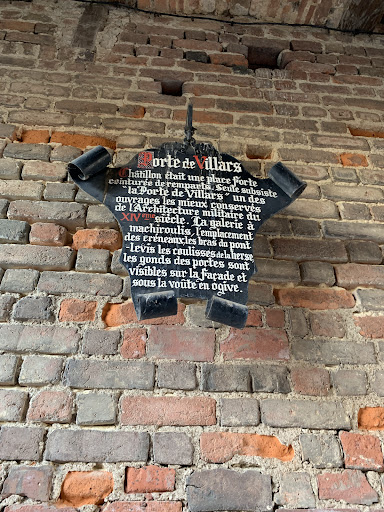 Porte de Villars
Châtillon était une place forte
ceinturée de remparts. Seule subsiste
la "Porte de Villars" un des
ouvrages les mieux conservés
de l'Architecture militaire du
XIVème siècle. La galerie à
machicoulis, l'emplacement
des créneaux, les bras du pont
-levis les coulisses de la herse
les gonds des portes sont
visibles sur la façade et
sous la voûte en ogive.